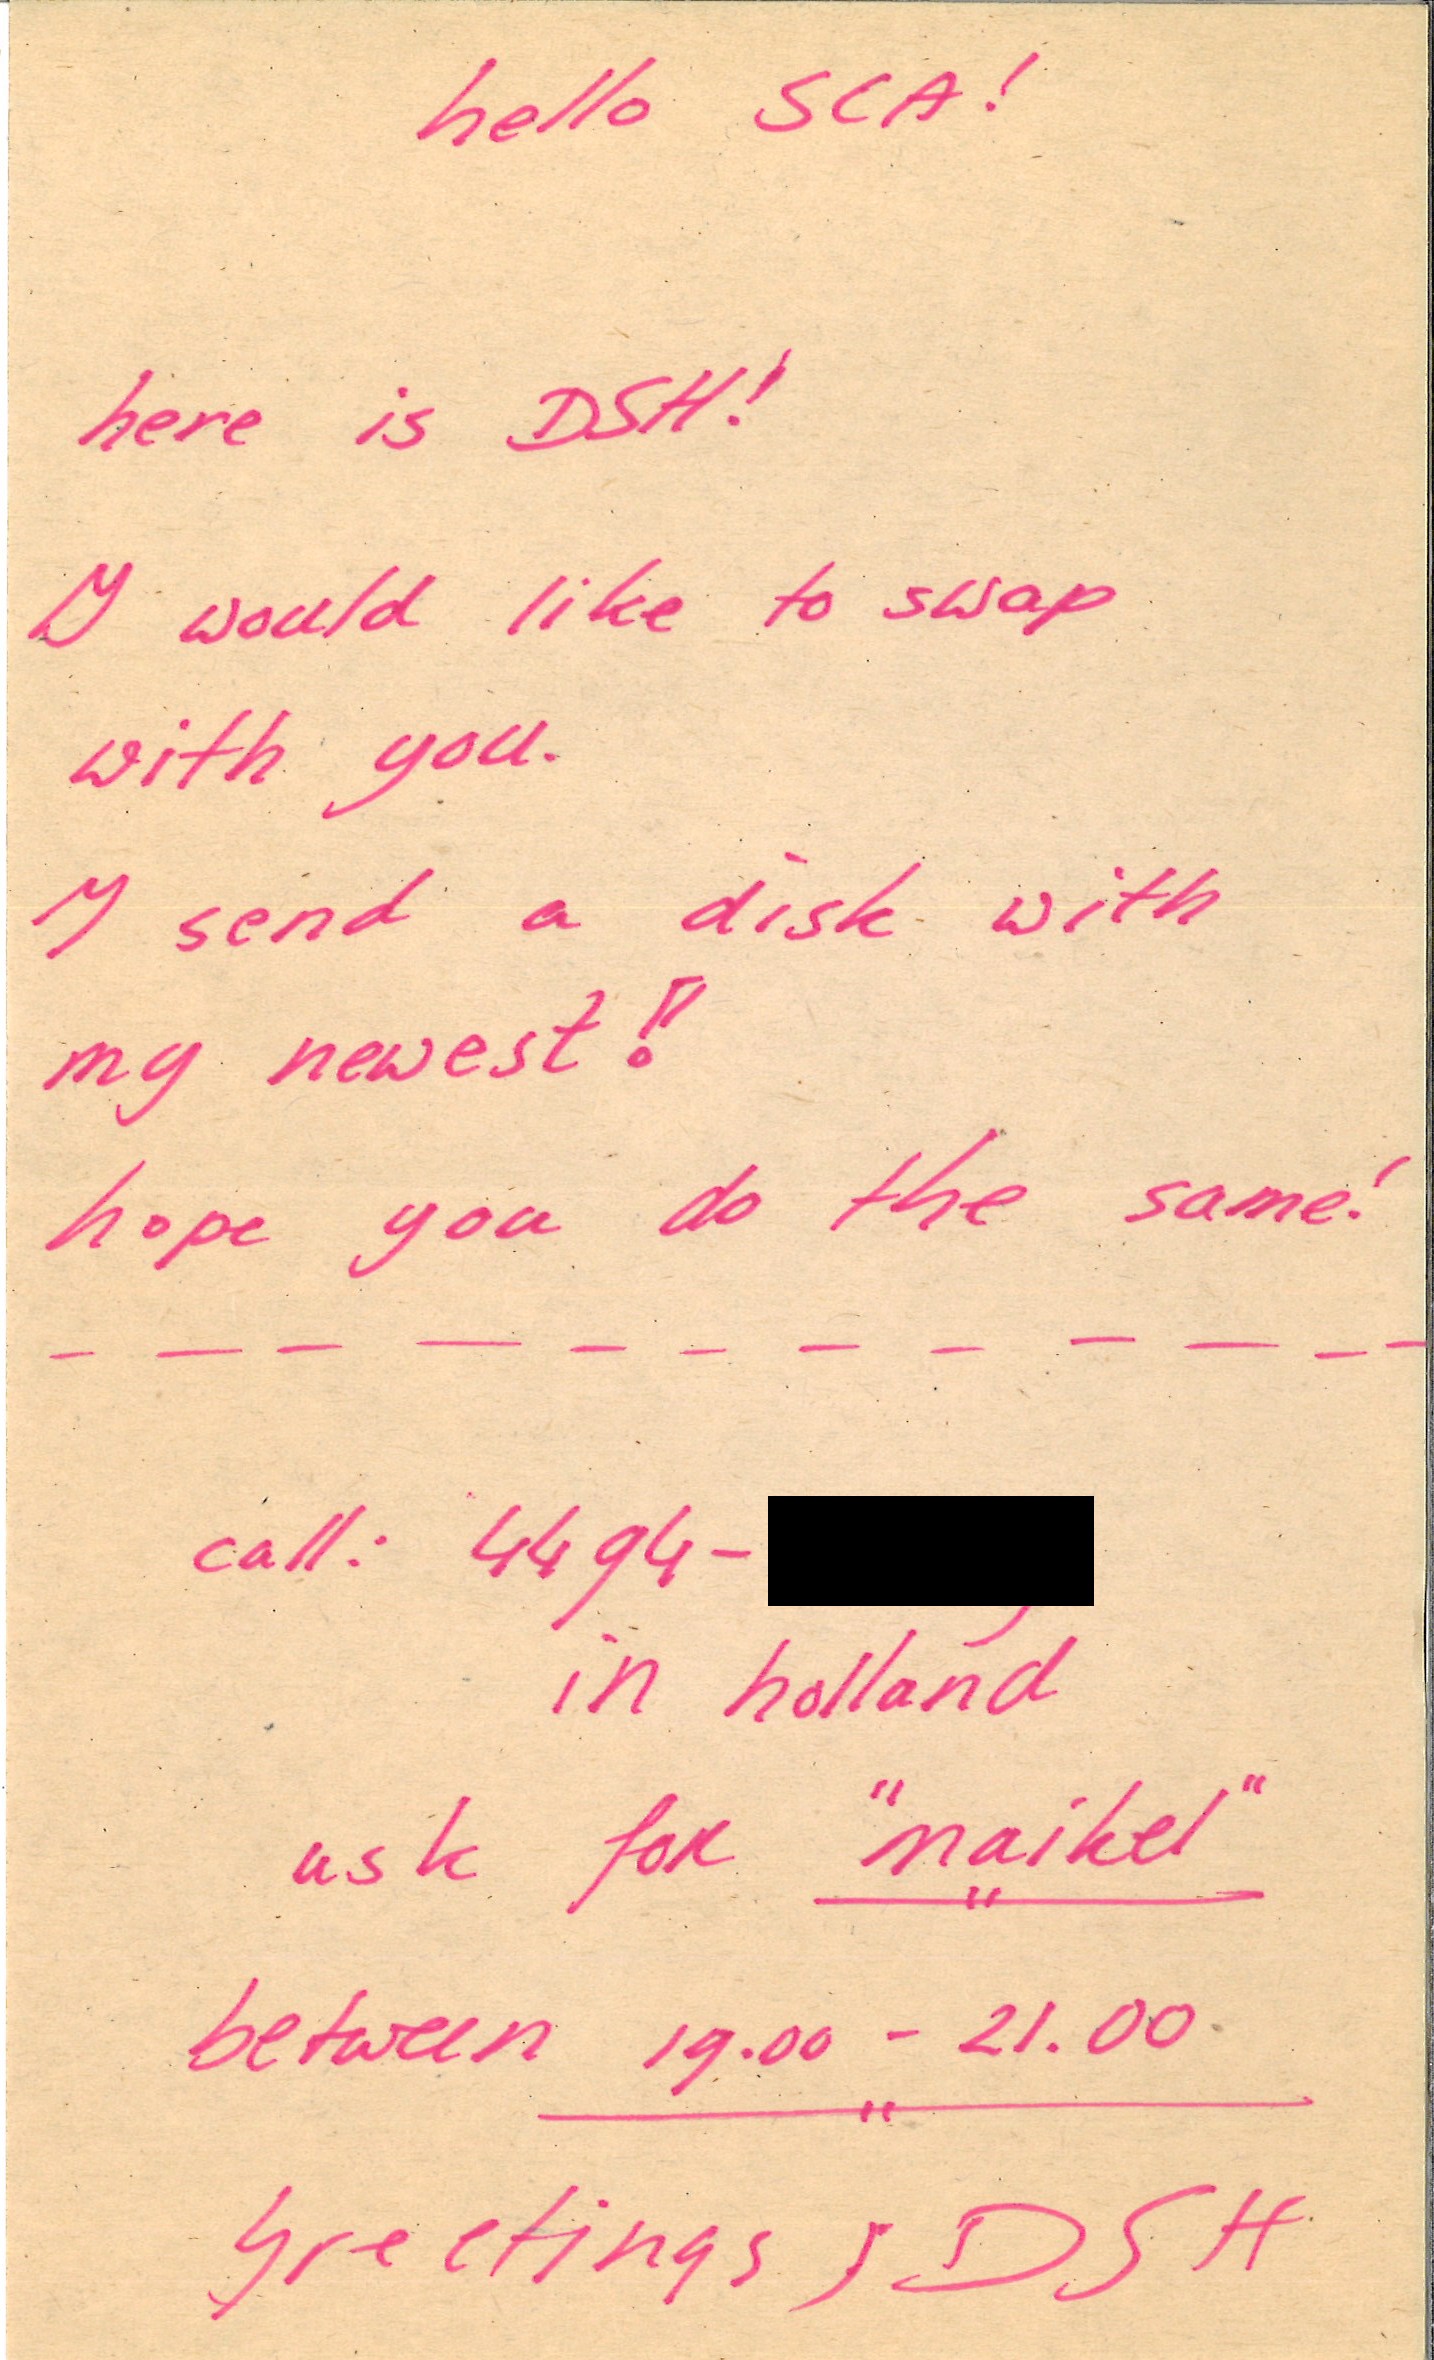 hello SCA!
here is DSH!
I would like to swap
with you.
I send a disk with
my newest!
hope you do the same!
call: 4494-
in holland
ask for "maikel"
between 19.00 - 21.00
Greetings, DSH